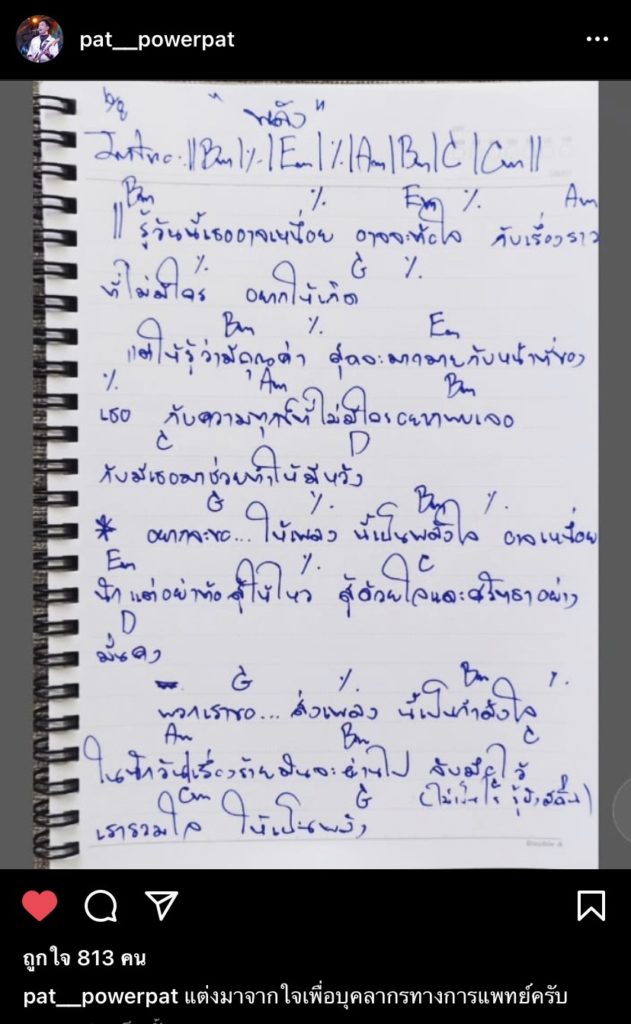 pat__powerpat
6/8
"พลัง"
Intro: || Bm | ٪. | Em | ٪. | Am | Bm | C | Cm ||
Bm ٪. Em ٪. Am
|| รู้วันนี้เธออาจเหนื่อย อาจจะท้อใจ กับเรื่องราว
٪. G ٪.
ที่ไม่มีใคร อยากให้เกิด
Bm ٪. Em
แต่ให้รู้ว่ามีคุณค่า สุดจะมากมายกับหน้าที่ของ
٪. Am Bm
เธอ กับความทุกข์ที่ไม่มีใครอยากพบเจอ
C D
กับมีเธอมาช่วยทำให้มีหวัง
G ٪. Bm ٪.
* อยากจะขอ... ให้เพลง นี้เป็นพลังใจ อาจเหนื่อย
Em ٪. C
นัก แต่อย่าท้อสู้ให้ไหว สู้ด้วยใจและศรัทธาอย่าง
D
มั่นคง
G ٪. Bm ٪.
พวกเราขอ... ส่งเพลง นี้เป็นกำลังใจ
Am Bm C
ในสักวันเรื่องร้ายมันจะผ่านไป จับมือไว้
Cm G (ไม่เป็นไร รู้ยังมีฉัน)
เรารวมใจ ให้เป็นพลัง
Double A
ถูกใจ 813 คน
pat__powerpat แต่งมาจากใจเพื่อบุคลากรทางการแพทย์ครับ